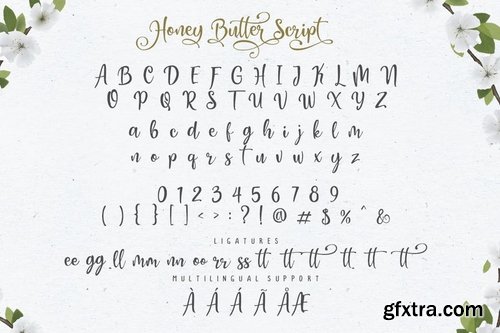 Honey Butter Script
A B C D E F G H I J K L M N
O P Q R S T U V W X Y Z
a b c d e f g h i j k l m
n o p q r s t u v w x y z
0 1 2 3 4 5 6 7 8 9
( ) { } [ ] < > : ? ! @ # $ % ^ &
LIGATURES
ee gg ll mm nn oo rr ss tt tt tt tt tt tt
MULTILINGUAL SUPPORT
À Á Â Ã Å Æ
gfxtra.com